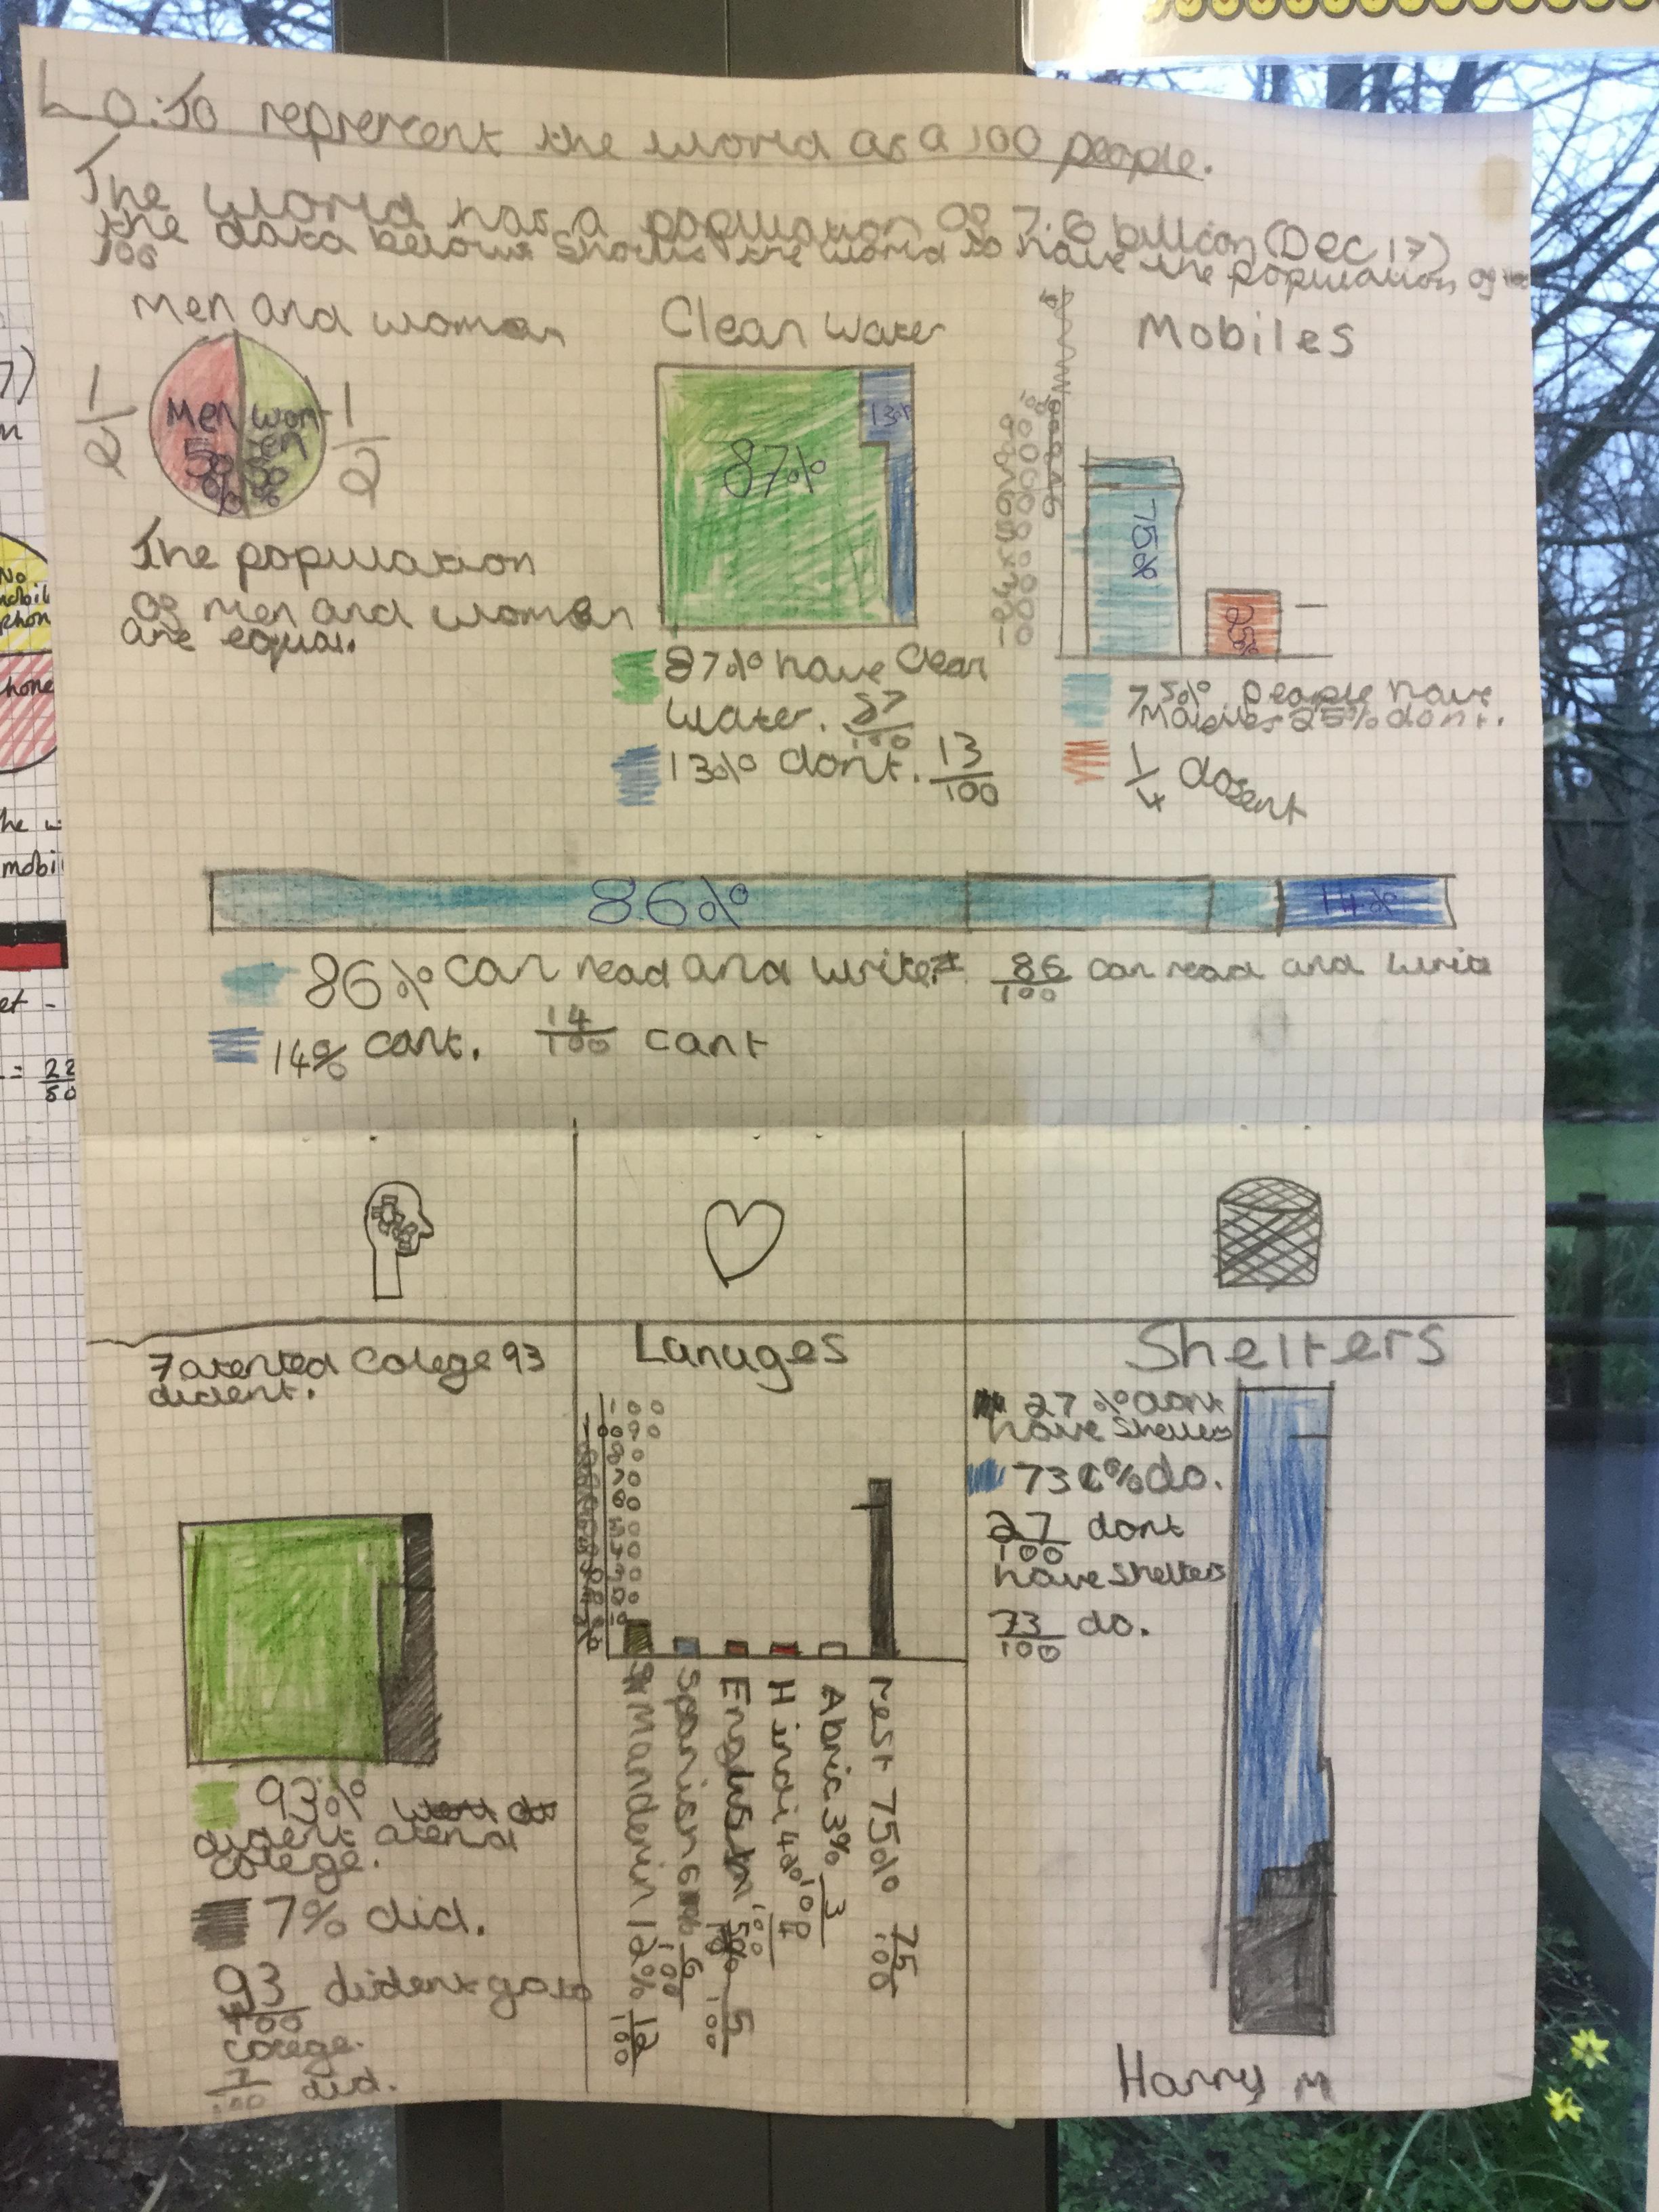 LO: To reprercent the world as a 100 people.
The world has a population of 7.6 billion (Dec 17)
the data below shows the world to have the population of
100
Men and woman
1/2
Men
50
%
wom
en
50
%
1/2
The population
of men and women
are equal.
Clean water
87%
13%
87% have clean
water. 87/100
13% dont. 13/100
Mobiles
75%
25%
75% people have
Mobiles 25% dont.
1/4 dosent
86%
14%
86% can read and write 86/100 can read and write
14% cant. 14/100 cant
7 atented Colege 93
dident.
93%
dident atend
colege.
7% did.
93/100 dident go to
colege.
7/100 did.
Lanuages
100
90
80
70
60
50
40
30
20
10
Manderin 12% 12/100
Spanish 6% 6/100
English 5% 5/100
Hindi 4% 4/100
Abric 3% 3/100
rest 75% 75/100
Shelters
27% dont
have Shelters
73% do.
27/100 dont
have Shelters
73/100 do.
Harry M
7)
No
mobil
phon
hone
he w
mobi
et -
= 22/50